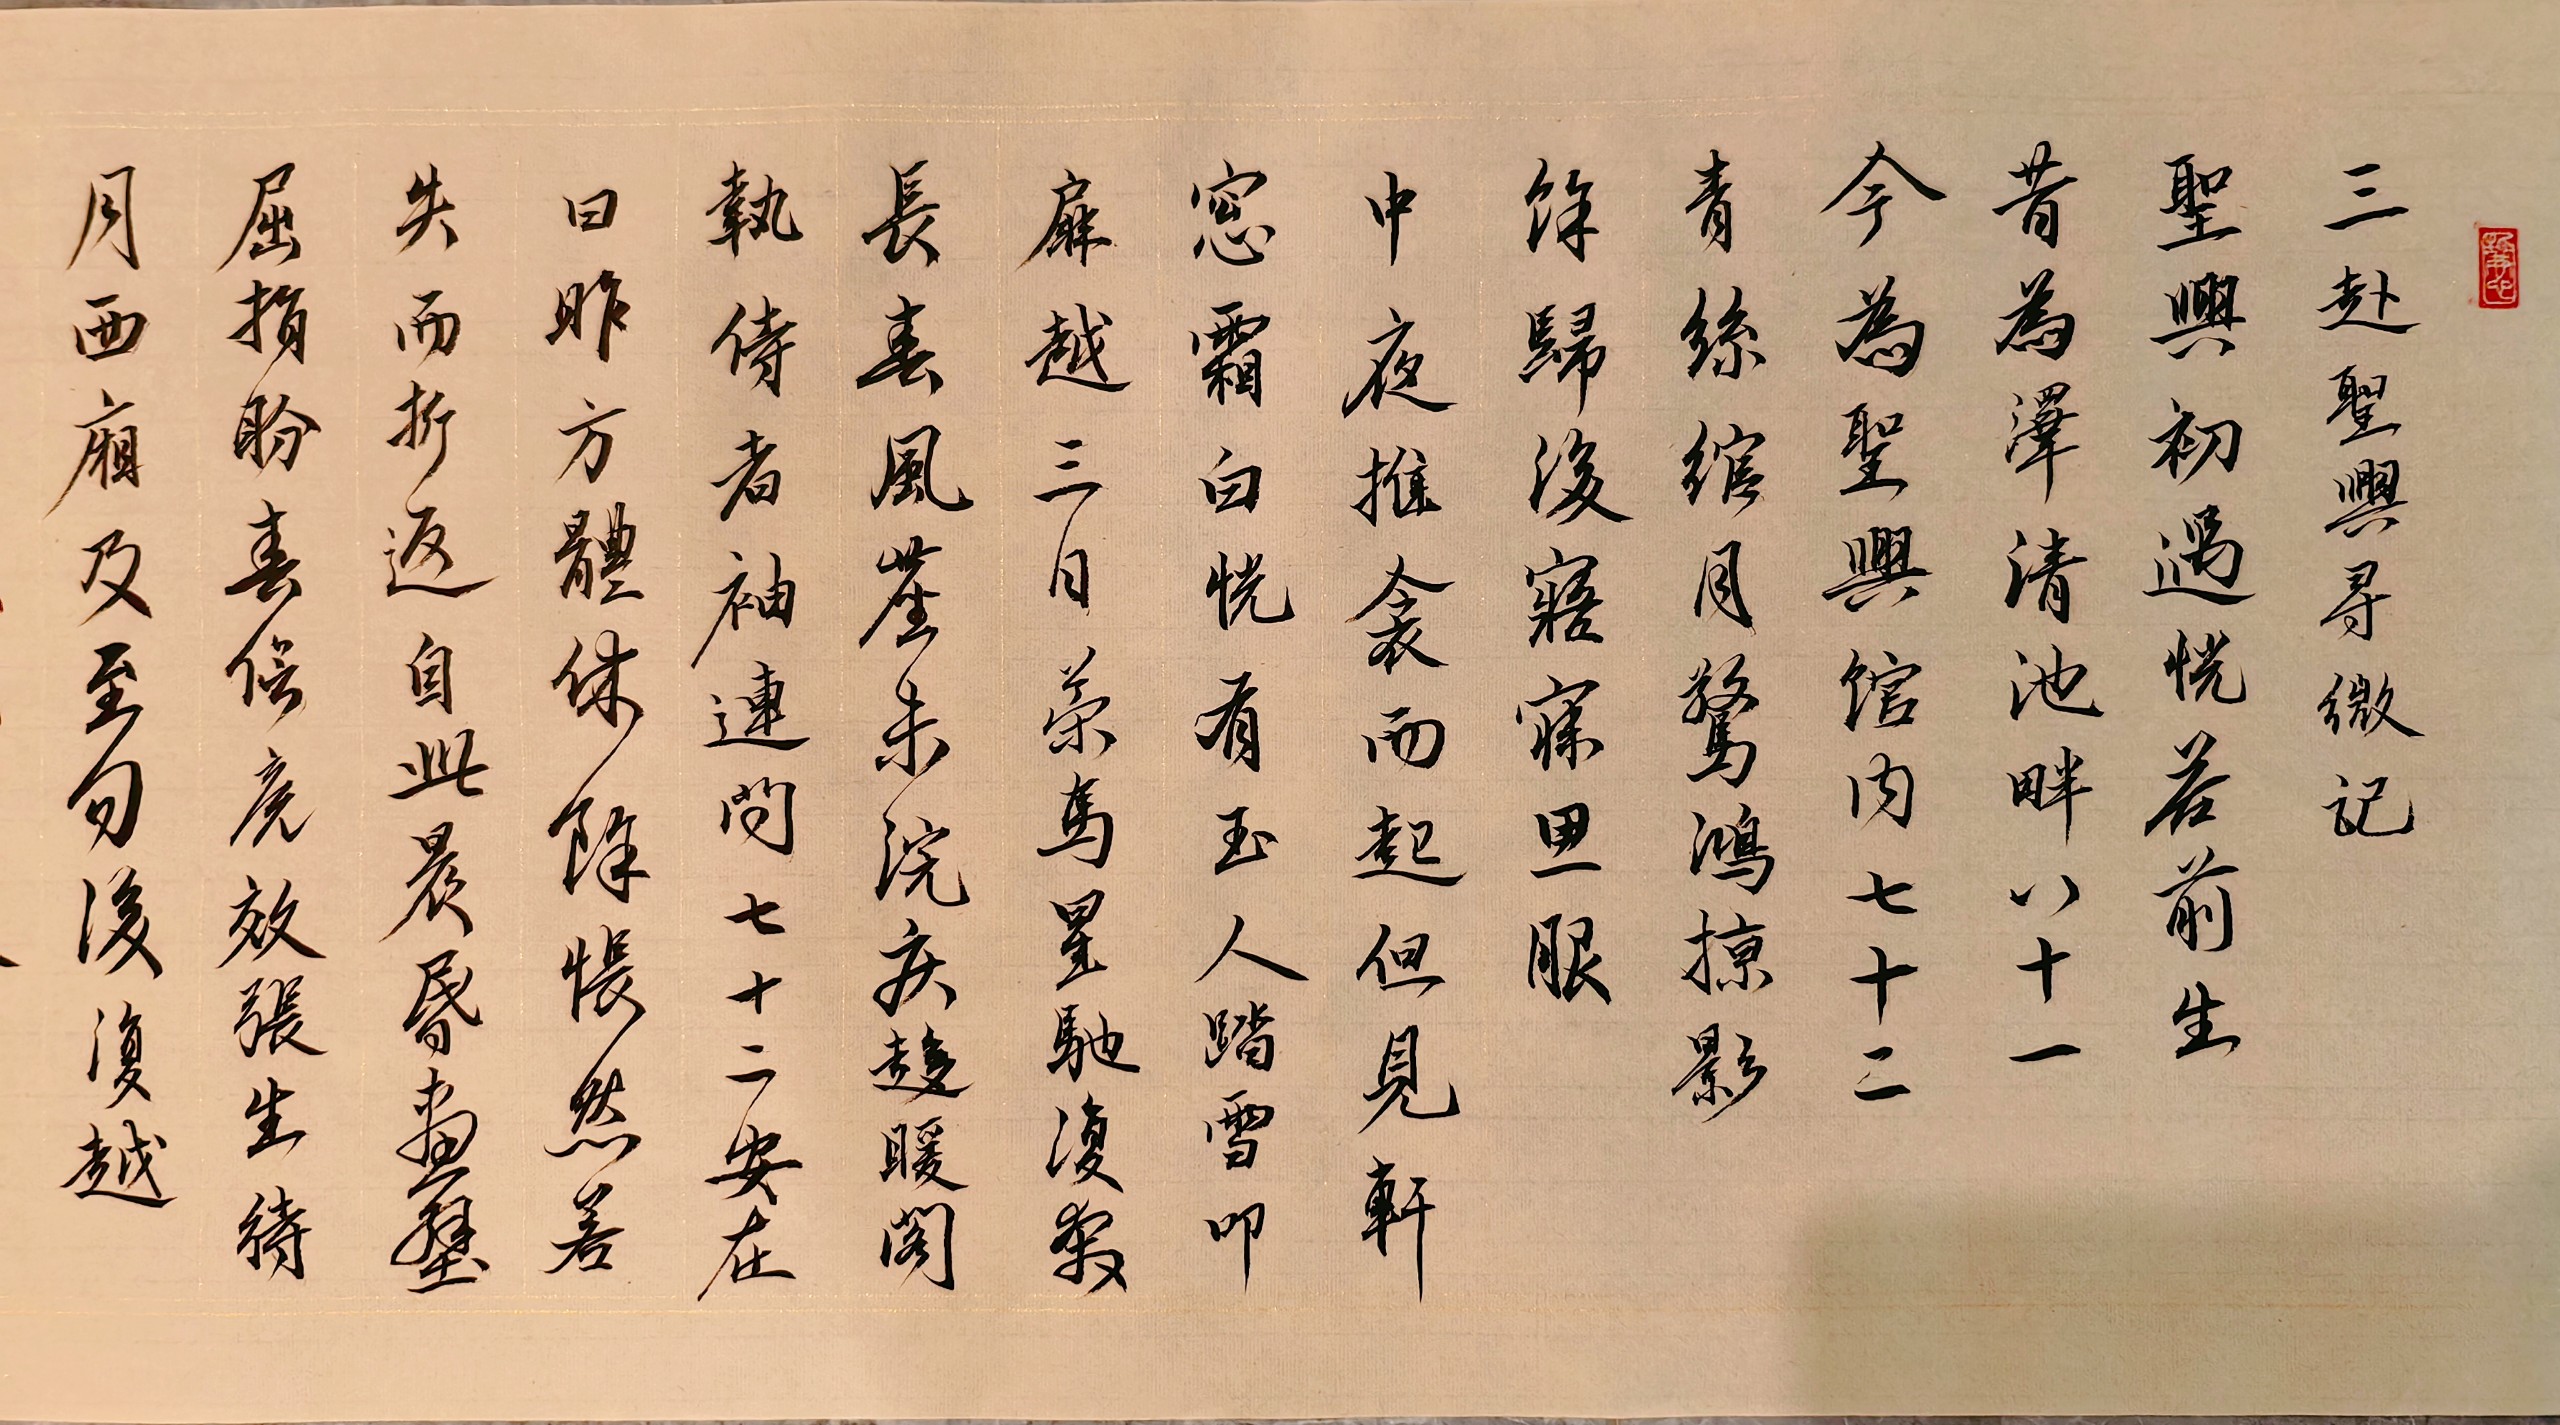 三赴聖興尋微记
聖興初遇恍若前生
昔為潭清池畔八十一
今為聖興馆内七十二
青絲绾月驚鴻掠影
馀歸後寤寐思服
中夜推衾而起但見軒
窓霜白恍有玉人踏雪叩
扉越三日策馬星馳復發
長春風塵未浣疾趨暖阁
執侍者袖連问七十二安在
曰昨方體休馀悵然若
失而折返自此晨昏畫壁
屈指盼春倍度效張生待
月西廂及至旬後復越